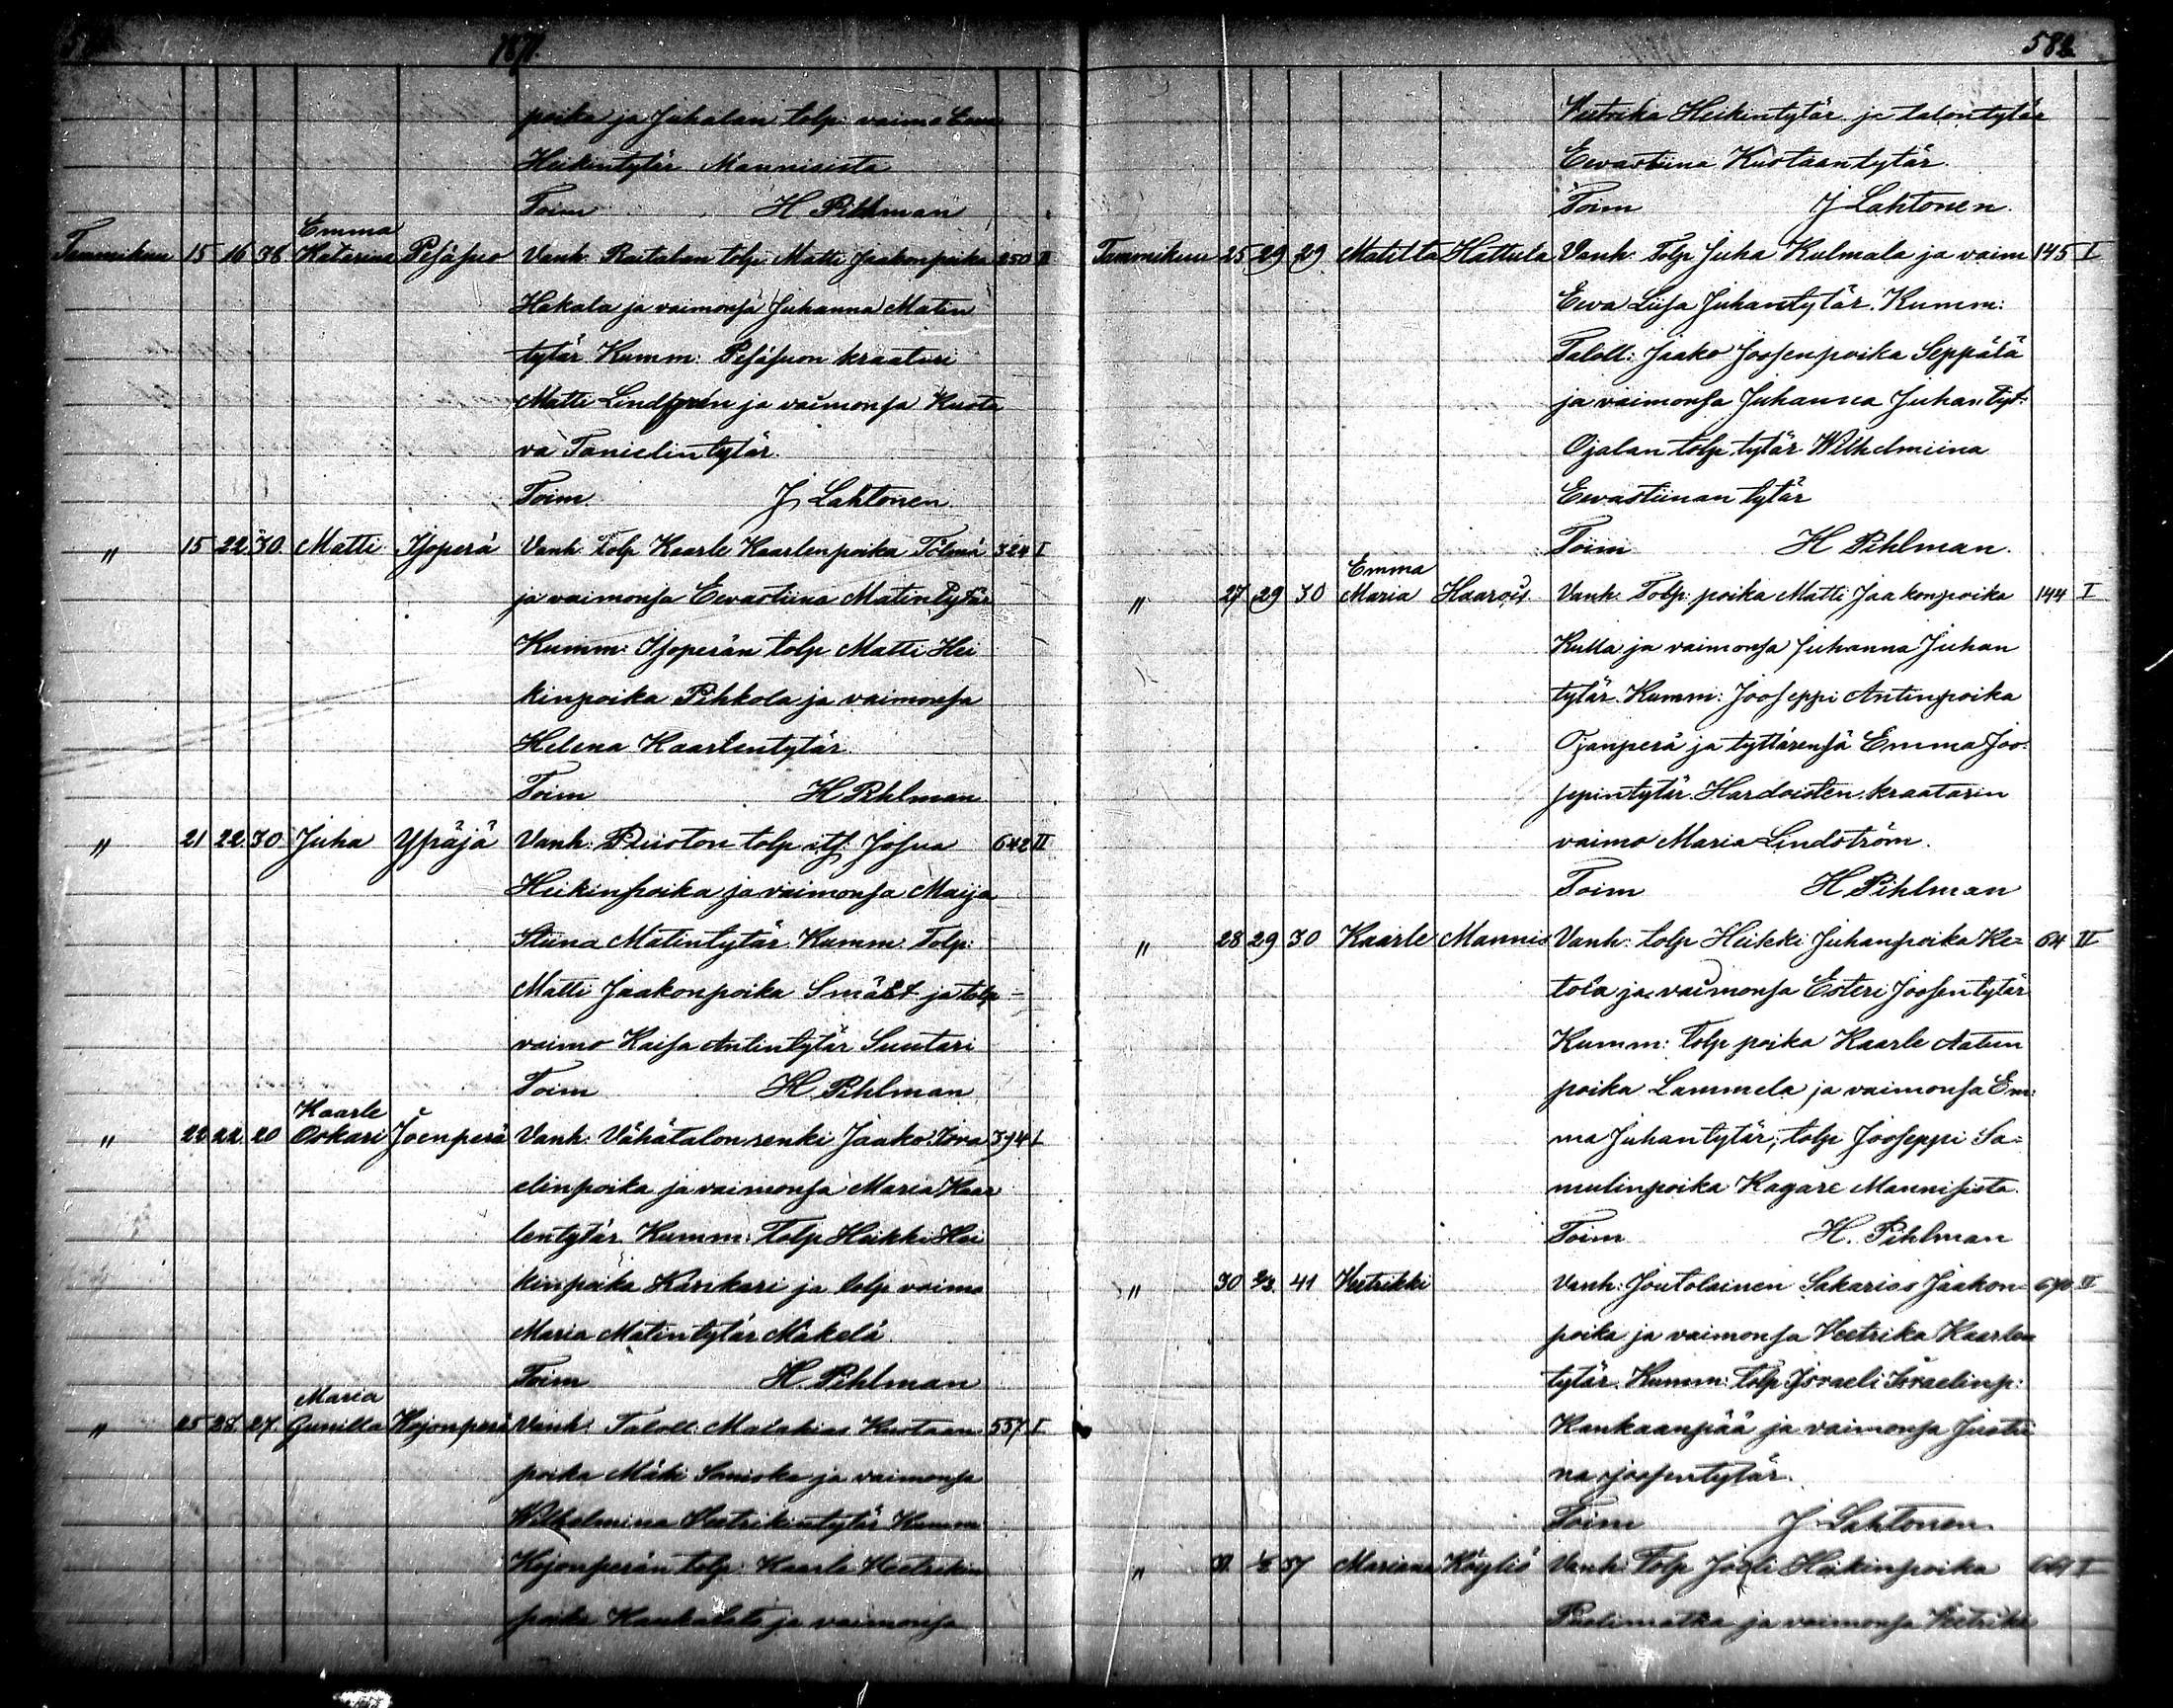 1871.
poika ja Juhalan tolp: vaimo Eewa
Heikintytär Mannisista
Toim H Pihlman
Emma
Tammikuu 15 16 38 Katarina Pesäsuo Vanh. Raitalan tolp. Matti Jaakonpoika 250 II
Hakala ja vaimonsa Juhanna Matin
tytär Kumm: Pesäsuon kraatari
Matti Lindgrén ja vaimonsa Kusta
va Tanielintytär.
Toim. J Lahtonen.
" 15 22 30 Matti Isoperä Vanh. Tolp Kaarle Kaarlenpoika Tölmä 324 I
ja vaimonsa Eevastiina Matintytär
Kumm: Isoperän tolp Matti Hei
kinpoika Pihkola ja vaimonsa
Helena Kaarlentytär
Toim H Pihlman
" 21 22 30 Juha Ypäjä Vanh. Puiston tolp its. Josua 642 II
Heikinpoika ja vaimonsa Maija
Stiina Matintytär. Kumm. Tolp:
Matti Jaakonpoika Smält ja tolp
vaimo Kaisa Antintytär Suutari
Toim H. Pihlman
Kaarle
" 22 22 20 Oskari Joenperä Vanh. Vähätalon renki Jaako Isra 394 I
elinpoika ja vaimonsa Maria Kaar
lentytär. Kumm: Tolp Heikki Hei
kinpoika Kankari ja tolp vaimo
Maria Matintytär Mäkelä
Toim H. Pihlman
Maria
" 25 28 27 Gunilla Kojonperä Vanh. Taloll. Malakias Kustaan 557 I
poika Mäki ja vaimonsa
Wilhelmina Heetrikintytär Kumm
Kojonperän tolp. Kaarle Heetrikin
poika Kaukalato ja vaimonsa
582
Heetrika Heikintytär ja talontytär
Eevastiina Kustaantytär.
Toim J Lahtonen.
Tammikuu 25 29 29 Matilta Hattula Vanh. Tolp Juha Kulmala ja vaim 145 I
Eewa Liisa Juhantytär. Kumm:
Taloll: Jaako Joosenpoika Seppälä
ja vaimonsa Juhanna Juhantyt:
Ojalan tolp tytär Wilhelmiina
Eevastiinan tytär
Toim H Pihlman.
Emma
" 27 29 30 Maria Haarois. Vanh. Tolp: poika Matti Jaakonpoika 144 I
Kulla ja vaimonsa Juhanna Juhan
tytär. Kumm: Jooseppi Antinpoika
Ojanperä ja tyttärensä Emma Joo:
sepintytär. Hardoisten kraatarin
vaimo Maria Lindström.
Toim H Pihlman
" 28 29 30 Kaarle Mannis Vanh: tolp Heikki Juhanpoika Ke= 64 II
tola ja vaimonsa Esteri Joosentytär
Kumm: Tolp poika Kaarle Aatun
poika Lammela ja vaimonsa Em:
ma Juhantytär; tolp Jooseppi Sa=
mulinpoika Kagare Mannisista.
Toim H. Pihlman
" 30 2/3 41 Heetrikki Vanh: Joutolainen Sakarias Jaakon- 670 II
poika ja vaimonsa Heetrika Kaarlen
tytär. Kumm: Tolp Israeli Israelinp:
Kankaanpää ja vaimonsa Justii
na Joosentytär.
Toim J Lahtonen
" 31 37 Mariana Köyliö Vanh. Tolp Joeli Heikinpoika I
Puolimatka ja vaimonsa Heetrika